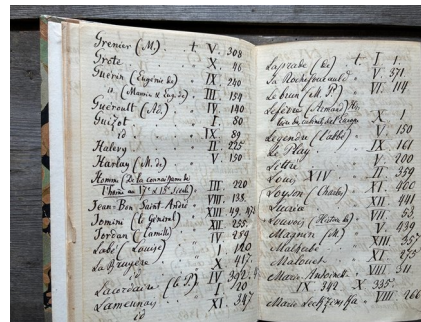 Grenier (M.) t. V. 308
Grote X. 46
Guérin (Eugénie de) IX. 240
id (Maurice & Eug. de) III. 154
Guéroult (Ad.) IV. 140
Guizot I. 80
id IX. 89
Halévy II. 225
Harlay (M. de) V. 150
Homme (De la connaissance de
l'homme au 17e & 18e siècle) III. 220
Jean-Bon Saint-André VIII. 138.
Jomini (le Général) XIII. 49,
Jordan (Camille) XII. 255.
Labé (Louise) IV. 289
La Bruyère I. 120
id X. 417.
Lacordaire (le P.) IV. 392.
Lamennais I. 20
id XI. 347
Laprade (de) t. I 1.
La Rochefoucauld V. 371.
Lebrun (M. P.) VI. 114
Lefèvre (Armand)
X. 1
Legendre (l'abbé) V. 150
Le Play IX. 161
Littré V. 200
Louis XIV II. 359
Loyson (Charles) XI. 400
XII. 441
Louvois VII. 53.
Magnin (M) V. 439
Malherbe XIII. 357
Malouet XI. 275
Marie Antoinette VIII. 311
IX 342 X. 335.
Marie Leckzinska VIII. 266